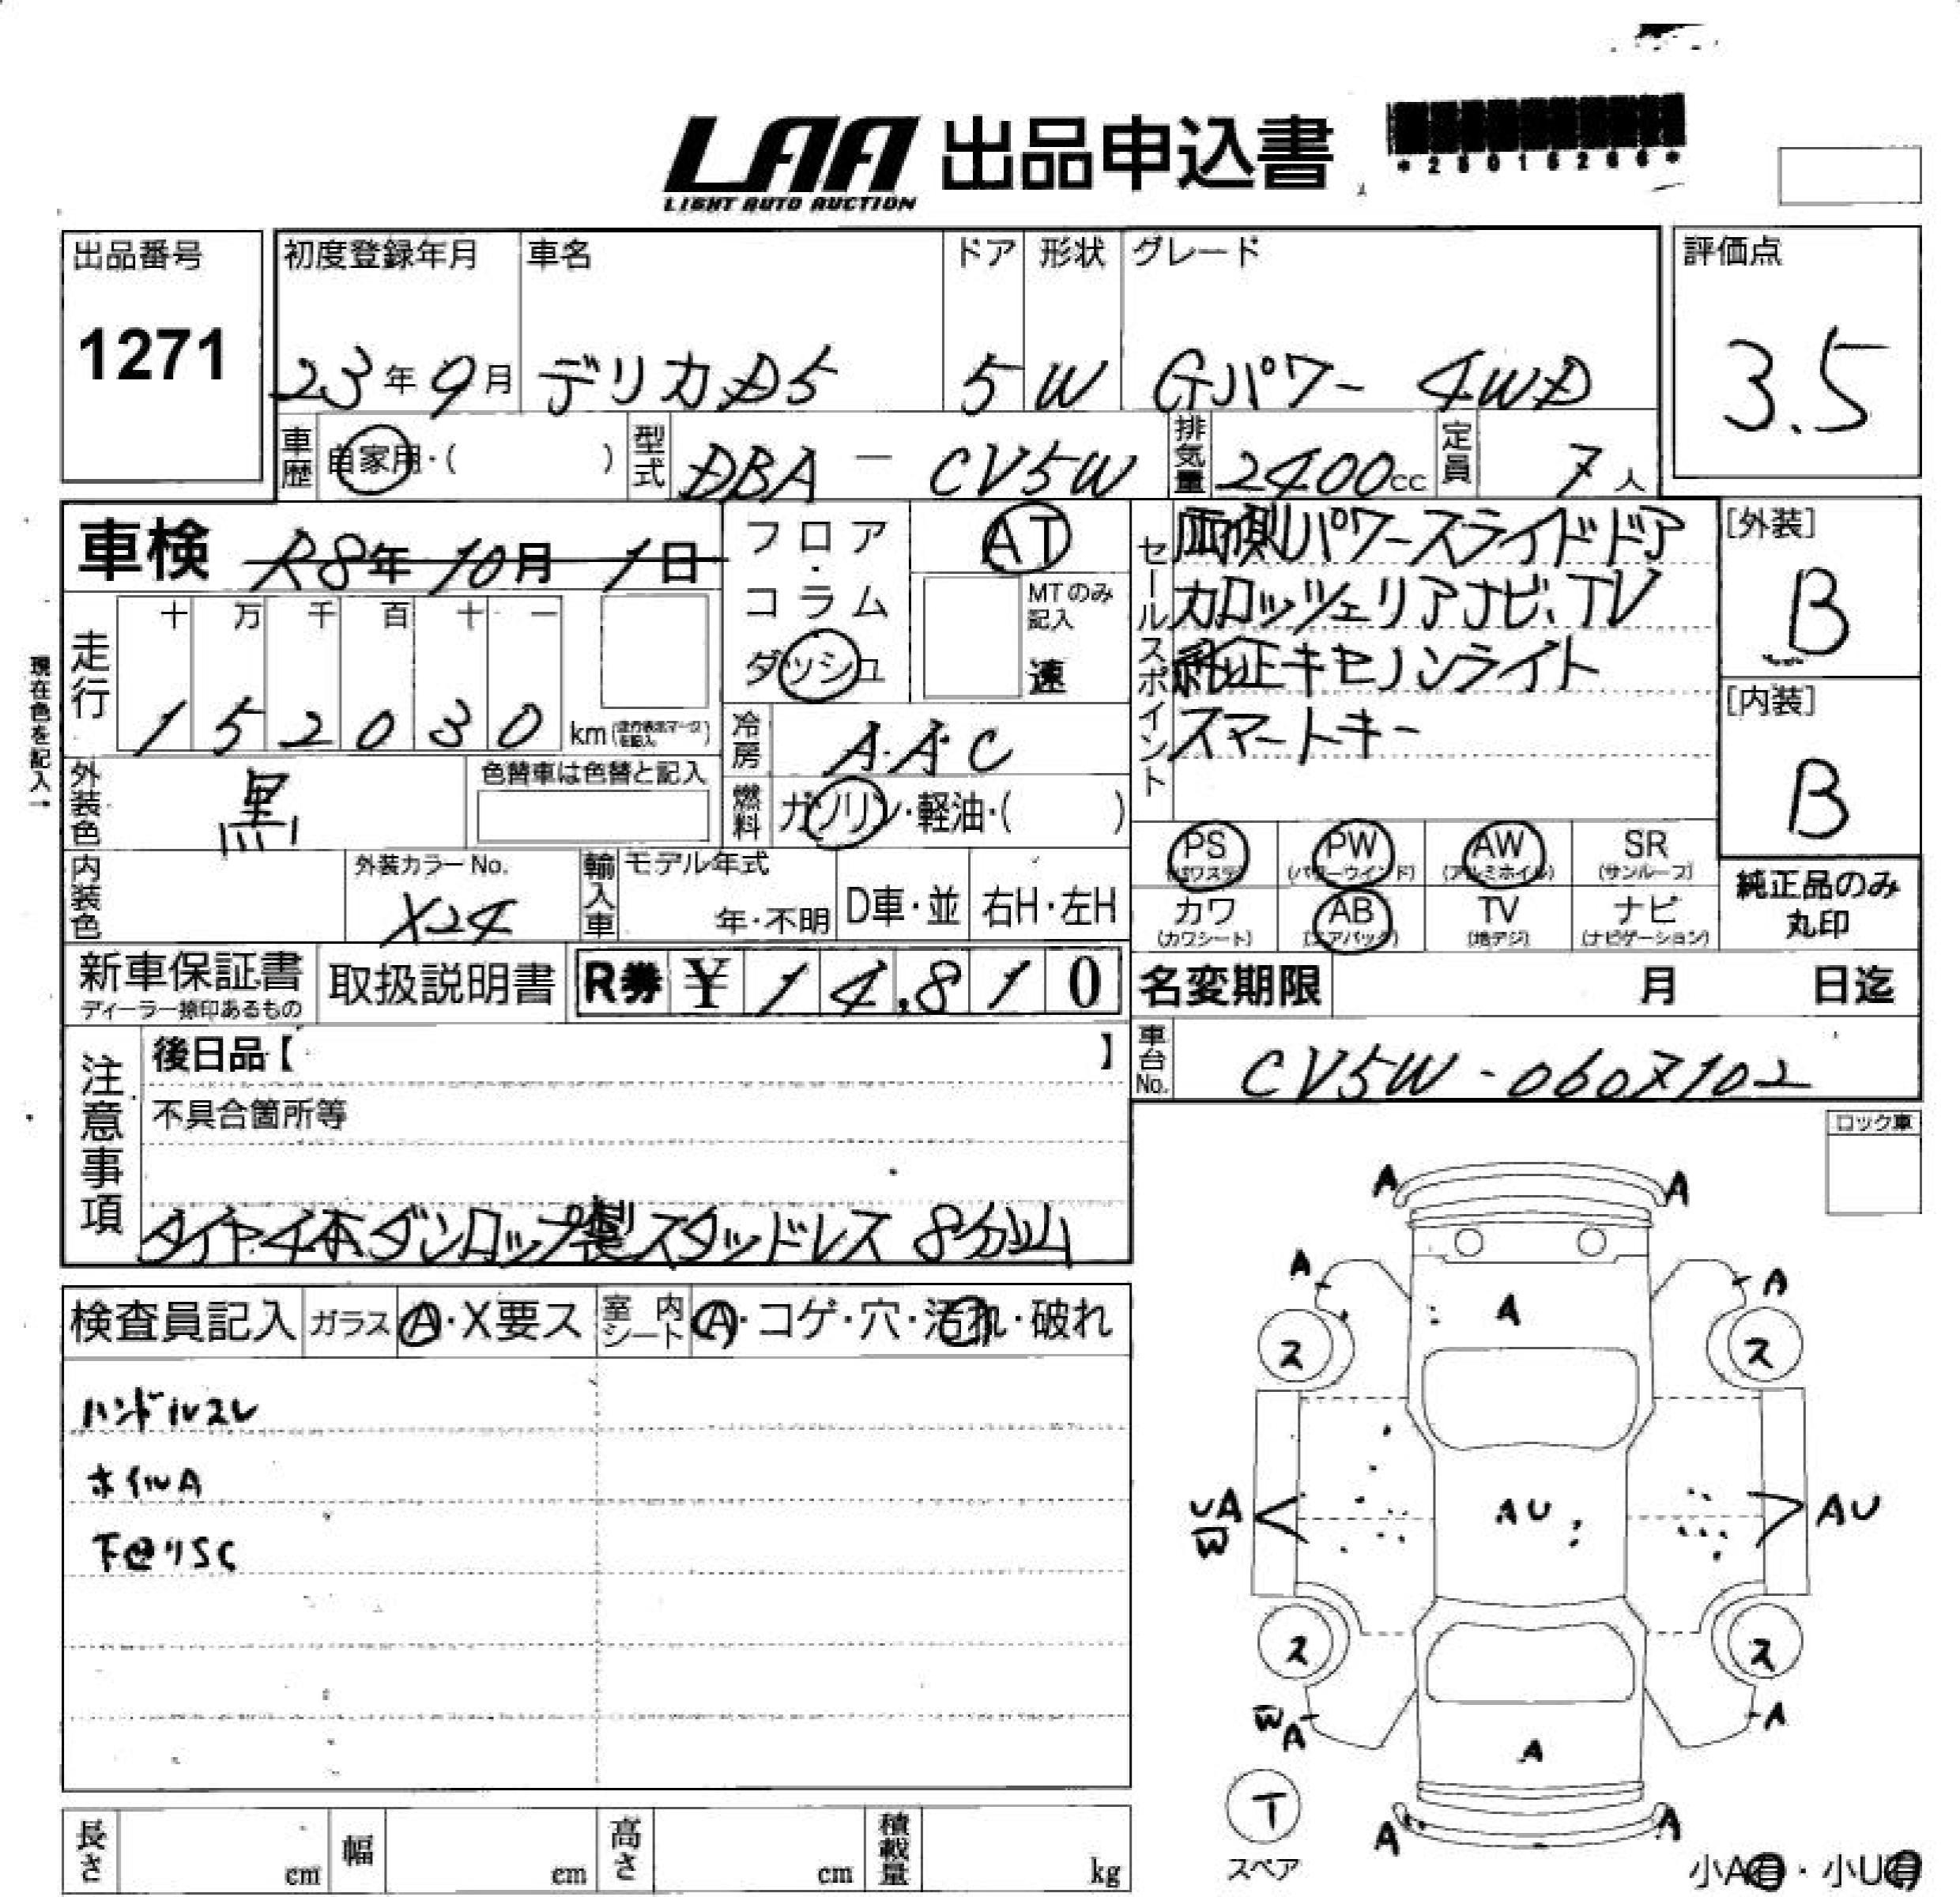 LAA 出品申込書
LIGHT AUTO AUCTION
出品番号
1271
初度登録年月 車名 ドア 形状 グレード
23年9月 デリカD5 5 W Gパワー 4WD
評価点
3.5
車歴 自家用・( ) 型式 DBA - CV5W 排気量 2400cc 定員 7人
車検 R8年10月1日
フロア・コラム ダッシュ
AT
MTのみ記入
速
セールスポイント
両側パワースライドドア
カロッツェリアナビ、TV
純正キセノンライト
スマートキー
[外装]
B
[内装]
B
現在色を記入→
走行 十 万 千 百 十 一
1 5 2 0 3 0 km
冷房 A・A・C
燃料 ガソリン・軽油・( )
外装色 黒 色替車は色替と記入
内装色 外装カラーNo. X24
輸入車 モデル年式 年・不明 D車・並 右H・左H
PS PW (パワーウインド) AW (アルミホイル) SR (サンルーフ)
カワ (カワシート) AB (エアバッグ) TV (地デジ) ナビ (ナビゲーション)
純正品のみ丸印
新車保証書 ディーラー捺印あるもの 取扱説明書 R券 ¥ 1 4,8 1 0
名変期限 月 日迄
車台No. CV5W-0607102
注意事項
後日品【 】
不具合箇所等
タイヤ4本ダンロップ製スタッドレス 8分山
ロック車
検査員記入 ガラス A・X要ス 室内シート A・コゲ・穴・汚れ・破れ
ハンドルスレ
ホイルA
下回りSC
A A
A A
A
ス ス
UA
W
AU
AU
ス ス
W A A
A
T
スペア
A A
小A有・小U有
長さ cm 幅 cm 高さ cm 積載量 kg